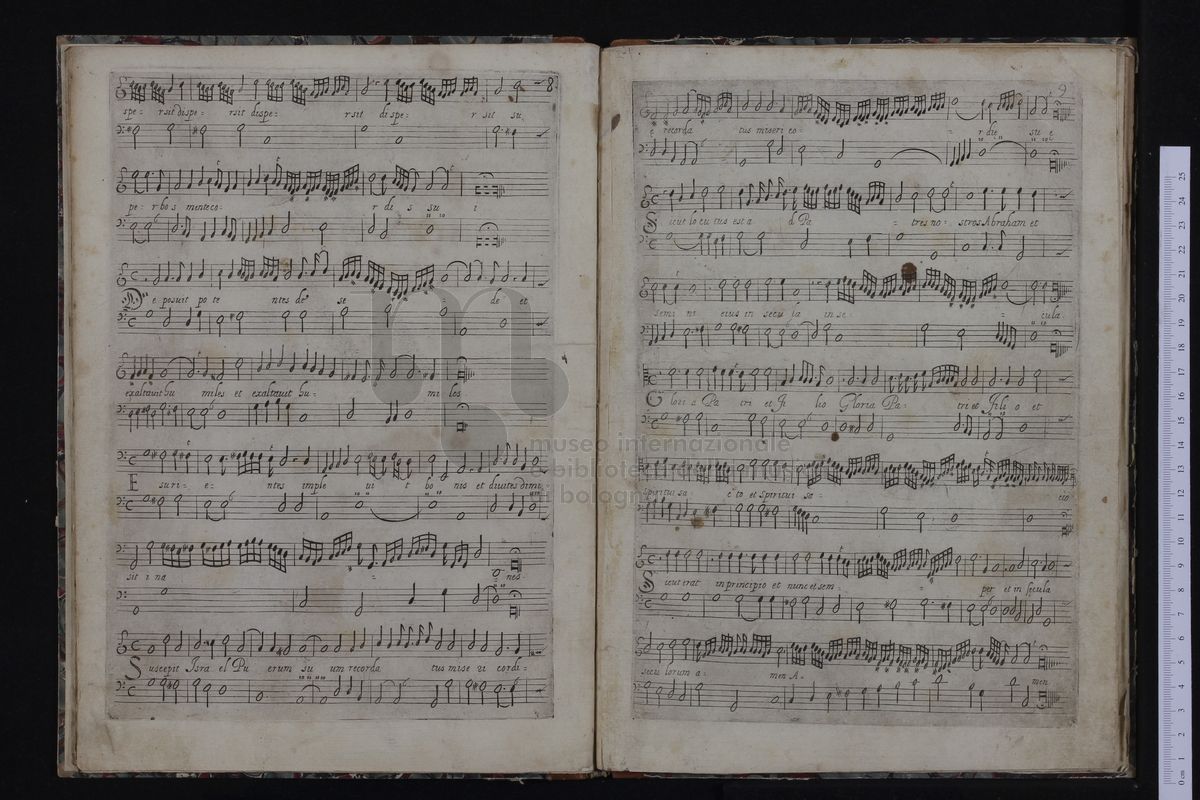 8
spe - rsit dispe - rsit dispe - rsit dispe - r sit su
pe - rbos mente co - r de s su i
Deposuit pote ntes de se - de et
exaltavit hu miles et exaltavit hu - mi les
Esuri - e - ntes imple vi t bo nis et divites dimi
sit ina - nes
Suscepit Isra el Pu erum su um recorda tus mise ri cordi -
9
recorda tus miseri co - r die su e
Sicut locutus est a d Pa - tres no - stros Abraham et
semi ni eius in secu la in se - cula
Glori a Pa tri et Fi lio Gloria Pa - tri et Filio et
spiritui sa - cto et Spiritui sa - cto
Sicut erat in principio et nunc et sem - per et in secula
secu lorum a - men A - men
museo internazionale
e biblioteca
di bologna
0 cm 1 2 3 4 5 6 7 8 9 10 11 12 13 14 15 16 17 18 19 20 21 22 23 24 25